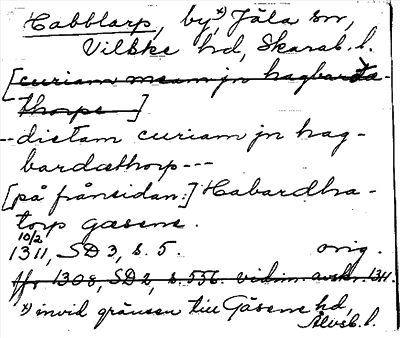 Habbtarp, by *) Jäla sn,
Vilske hd, Skarab. l.
[curiam meam jn hagbarda-
thorpe ]
-- dictam curiam jn hag-
bardæthorp ---
[på frånsidan:] Habardha-
torp gæsene.
10/2
1311, SD 3, s. 5. orig.
ffr 1308, SD 2, s. 556. vidim. avskr. 1311.
*) invid gränsen till Gäsene hd,
Älvsb. l.